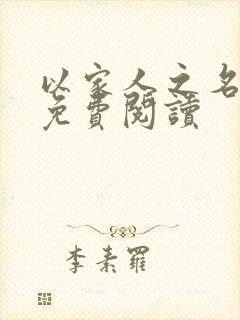 以家人之名
免費閱讀
李素羅